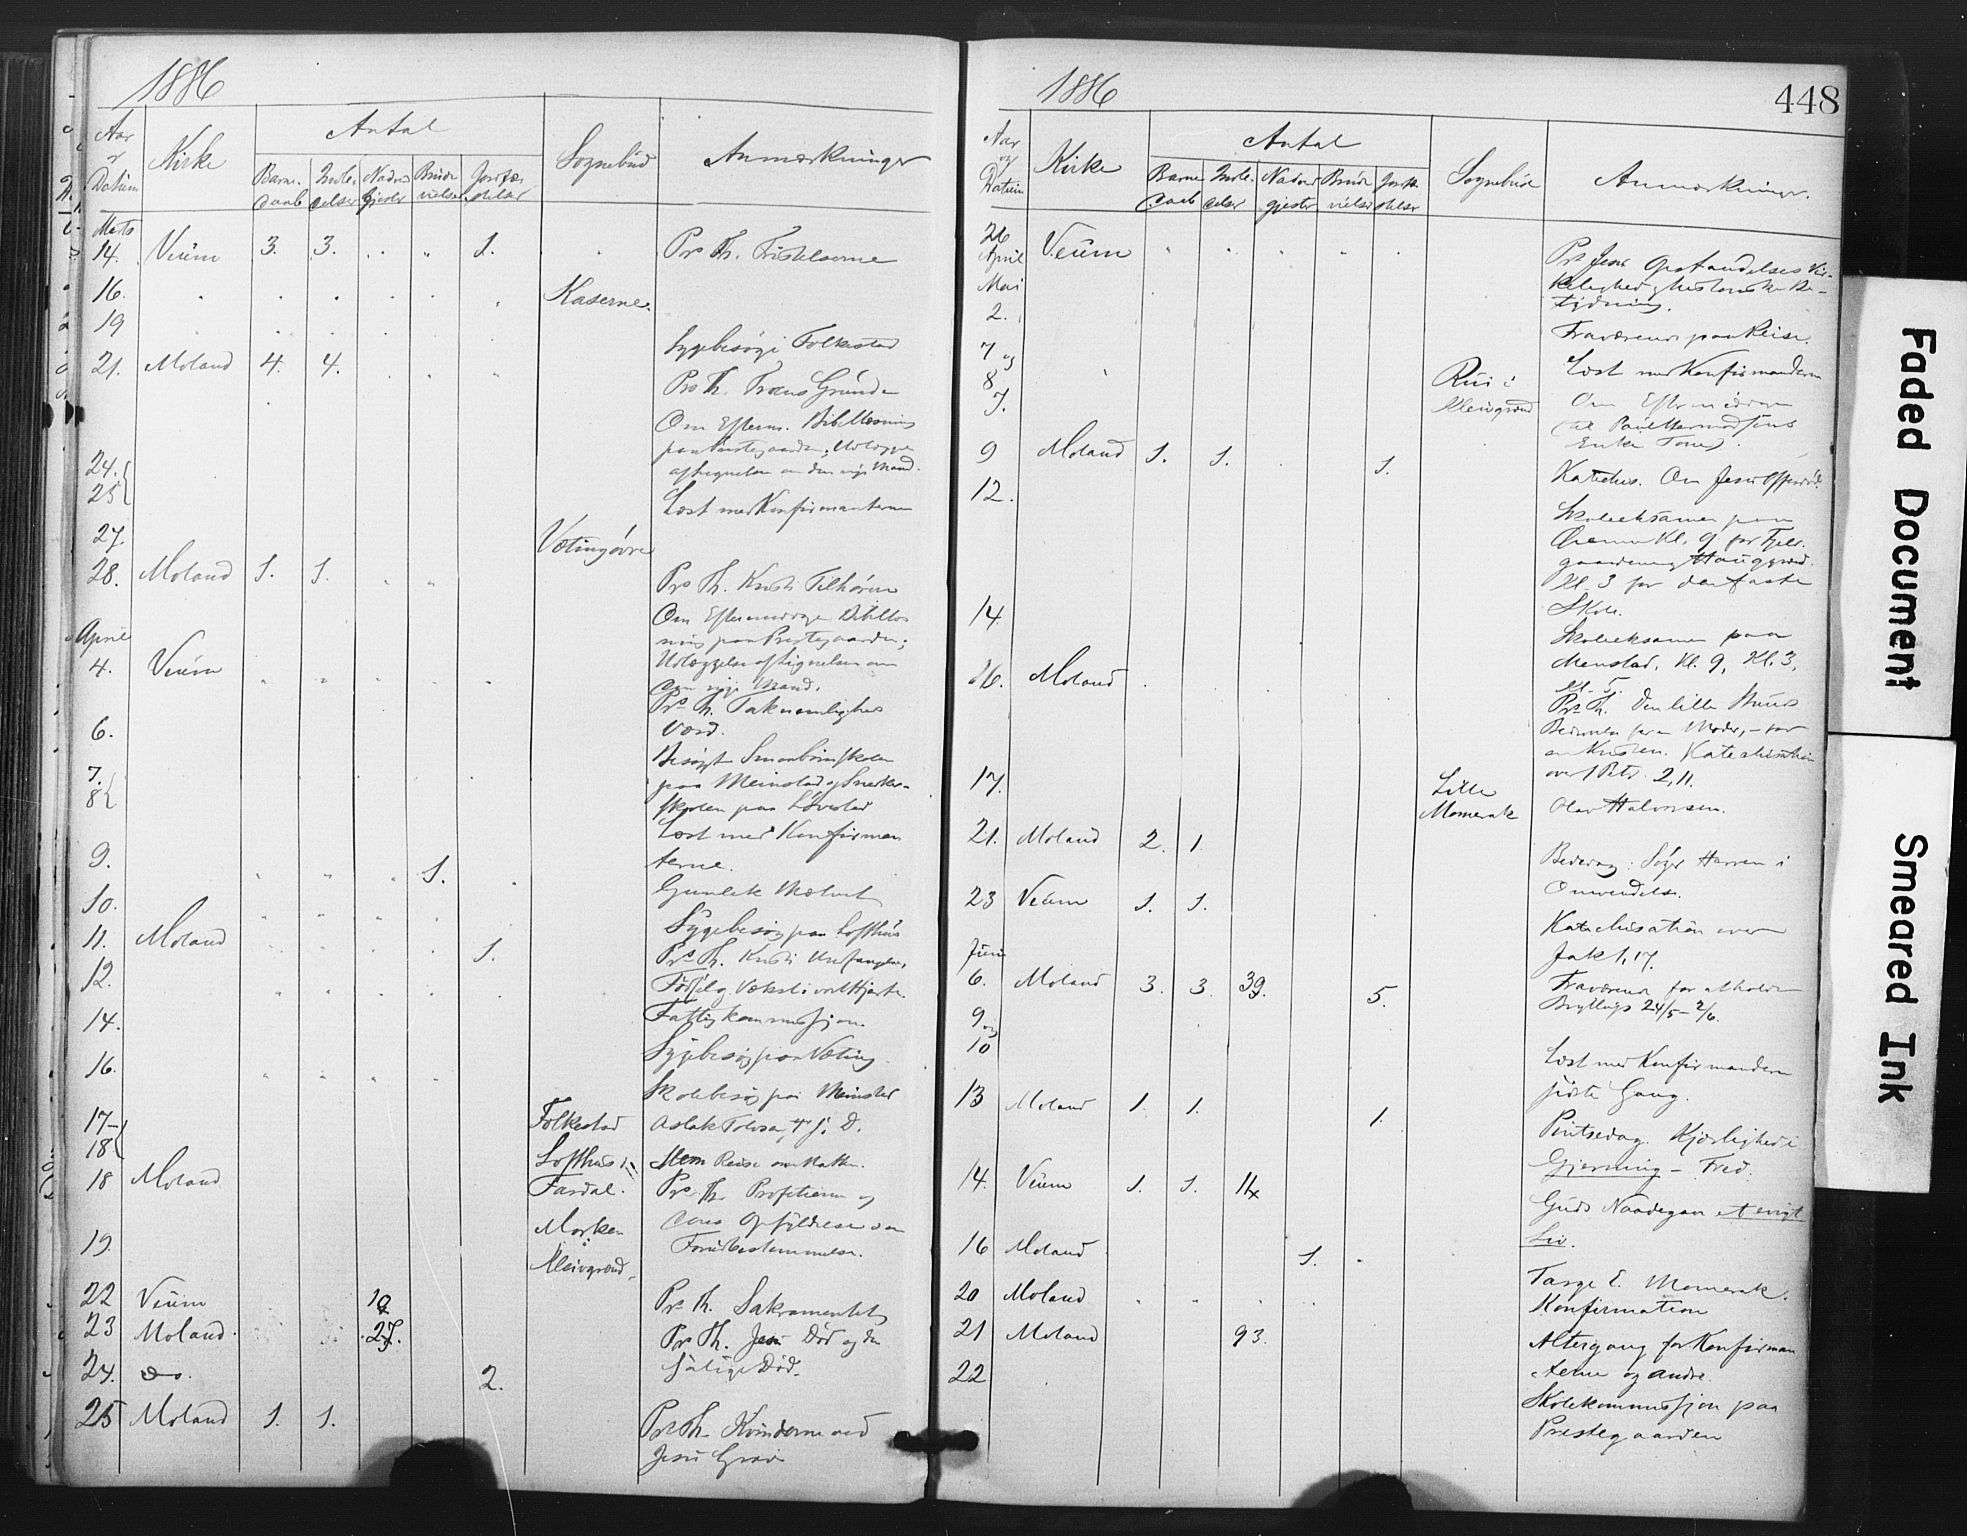 1886
Aar
Datum
Kirke
Antal
Barne-
daab
Indle-
delser
Nadver
gjester
Brude
vielser
Jordfæ
stelser
Sognebud
Anmærkninger
Marts
14. Veum 3. 3. 1. Pr. Th. Fristelserne
16. Kaserne.
19 Sygebesøg i Folkestad
21. Moland 4. 4. Pr. Th. Troens Grunde
Om Efterm. Bibellæsning
paa Prestegaarden, Udlægge
af Lignelsen om den rige Mand.
24.
25 Læst med Konfirmanterne
27. Vetingøvre
28. Moland 1. 1. Pr. Th. Kristi Tilhørere
Om Eftermiddagen Bibellæs
ning paa Prestegaarden;
April
4. Veum Udlæggelse af Lignelsen om
den rige Mand.
Pr. Th. Taknemlighed
6.
Besøgt Smaabørnskolen
7.
8 paa Meinstad og
skolen paa Løvestad
Læst med Konfirman
9. 1. terne.
Gunlek
10. Sygebesøg paa Lofthus
11. Moland 1. Pr. Th. Kristi Undfangelse,
12. Fødsel og Vækst i vort Hjerte.
14. Fattigkommissjon.
Sygebesøg paa Veting.
16. Skolebesøg paa Meinstad
17-
18 Folkestad Aslak
Lofthus i Mem Reise om Natten.
18 Moland Fardal. Pr. Th. Profetierne og
deres Opfyldelse
Morken Forudbestemmelse.
19. i
Kleivgrend.
22 Veum 19 Pr. Th. Sakramentet
23 Moland. 27. Pr. Th. Jesu Død og den
24. do. 2. salige Død.
25 Moland 1. 1. Pr. Th. Kvinderne ved
Jesu Grav
1886
448
Aar
og
Datum
Kirke
Antal
Barne
daab
Indle
delser
Nadver
gjester
Brude
vielser
Jordfæ
stelser
Sognebud
Anmærkninger.
26
April Veum Pr. Jesu Opstandelses Vir-
Mai kelighed og historiske Be-
2. tydning.
Fraværende paa Reise.
7 og
8 Læst med Konfirmanderne
7. Rui i
Kleivgrend Om Eftermiddagen
Enke Tone.
9 Moland 1. 1. 1.
Katechis. Om Jesu
12. Skoleeksamen paa
Kl. 9 for Fjeld-
gaardene og Hauggrend.
Kl. 3 for den faste
Skole.
14 Skoleeksamen paa
Menstad, Kl. 9, Kl. 3,
Kl. 5.
16. Moland Pr. Th. Den lille Stund
Bedrøvelse for en Moder,
Katechisation
over 1 Petr. 2,11.
17. Lille
Momerak Olav Halvorsen.
21. Moland 2. 1 Bededag: Søger Herren i
Omvendelse.
23 Veum 1. 1. Katechisation over
Jak 1,17.
Juni
6. Moland 3. 3. 39. 5. Fraværende for at holde
Bryllup 24/5 - 2/6.
9
og
10 Læst med Konfirmanderne
sidste Gang.
13 Moland 1. 1. 1.
Pintsedag. Kjærlighed i
Gjerning - Fred.
14. Veum 1. 1. 14
Guds Naadegave et evigt
Liv.
16 Moland 1. Targe E. Momerak.
20 Moland Konfirmation
21 Moland 93. Altergang for Konfirman
22 terne og andre.
Skolekommissjon paa
Prestegaarden
Faded Document
Smeared Ink